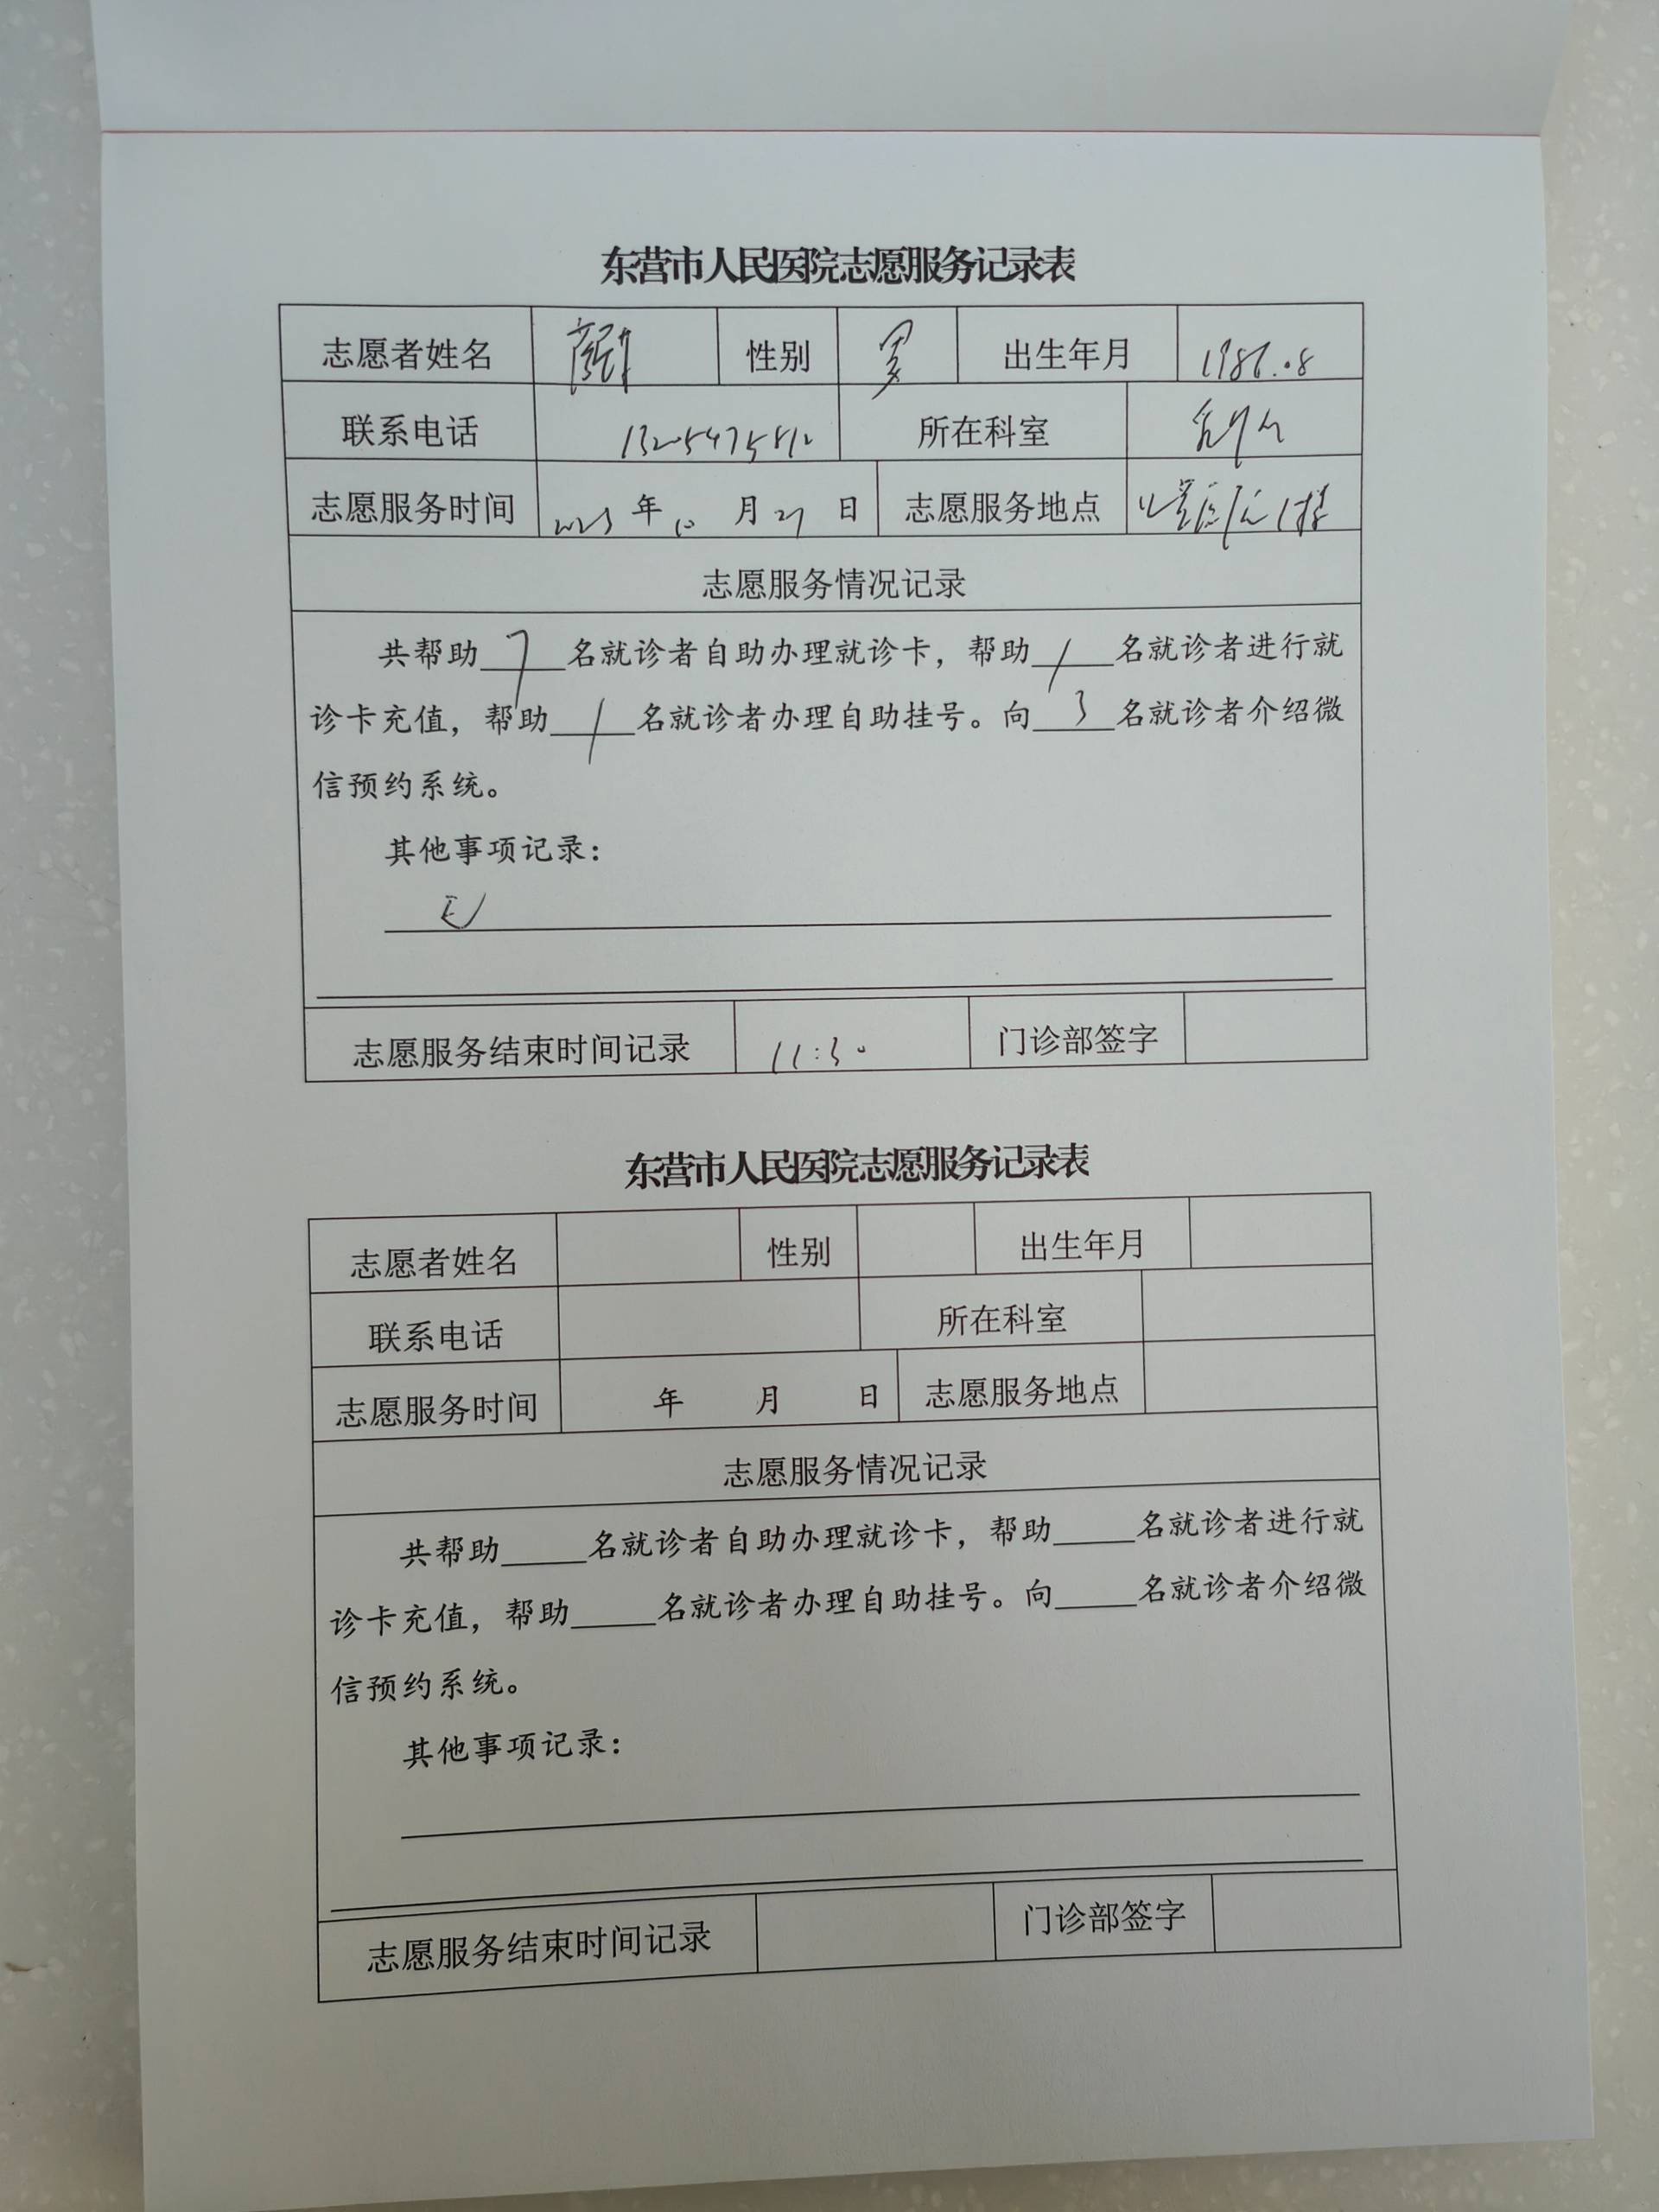 东营市人民医院志愿服务记录表
志愿者姓名 性别 男 出生年月 1986.08
联系电话 13205475812 所在科室
志愿服务时间 2023年10月27日 志愿服务地点 1楼
志愿服务情况记录
共帮助7名就诊者自助办理就诊卡，帮助/名就诊者进行就
诊卡充值，帮助/名就诊者办理自助挂号。向3名就诊者介绍微
信预约系统。
其他事项记录：
志愿服务结束时间记录 11:30 门诊部签字
东营市人民医院志愿服务记录表
志愿者姓名 性别 出生年月
联系电话 所在科室
志愿服务时间 年 月 日 志愿服务地点
志愿服务情况记录
共帮助_____名就诊者自助办理就诊卡，帮助_____名就诊者进行就
诊卡充值，帮助_____名就诊者办理自助挂号。向_____名就诊者介绍微
信预约系统。
其他事项记录：
志愿服务结束时间记录 门诊部签字